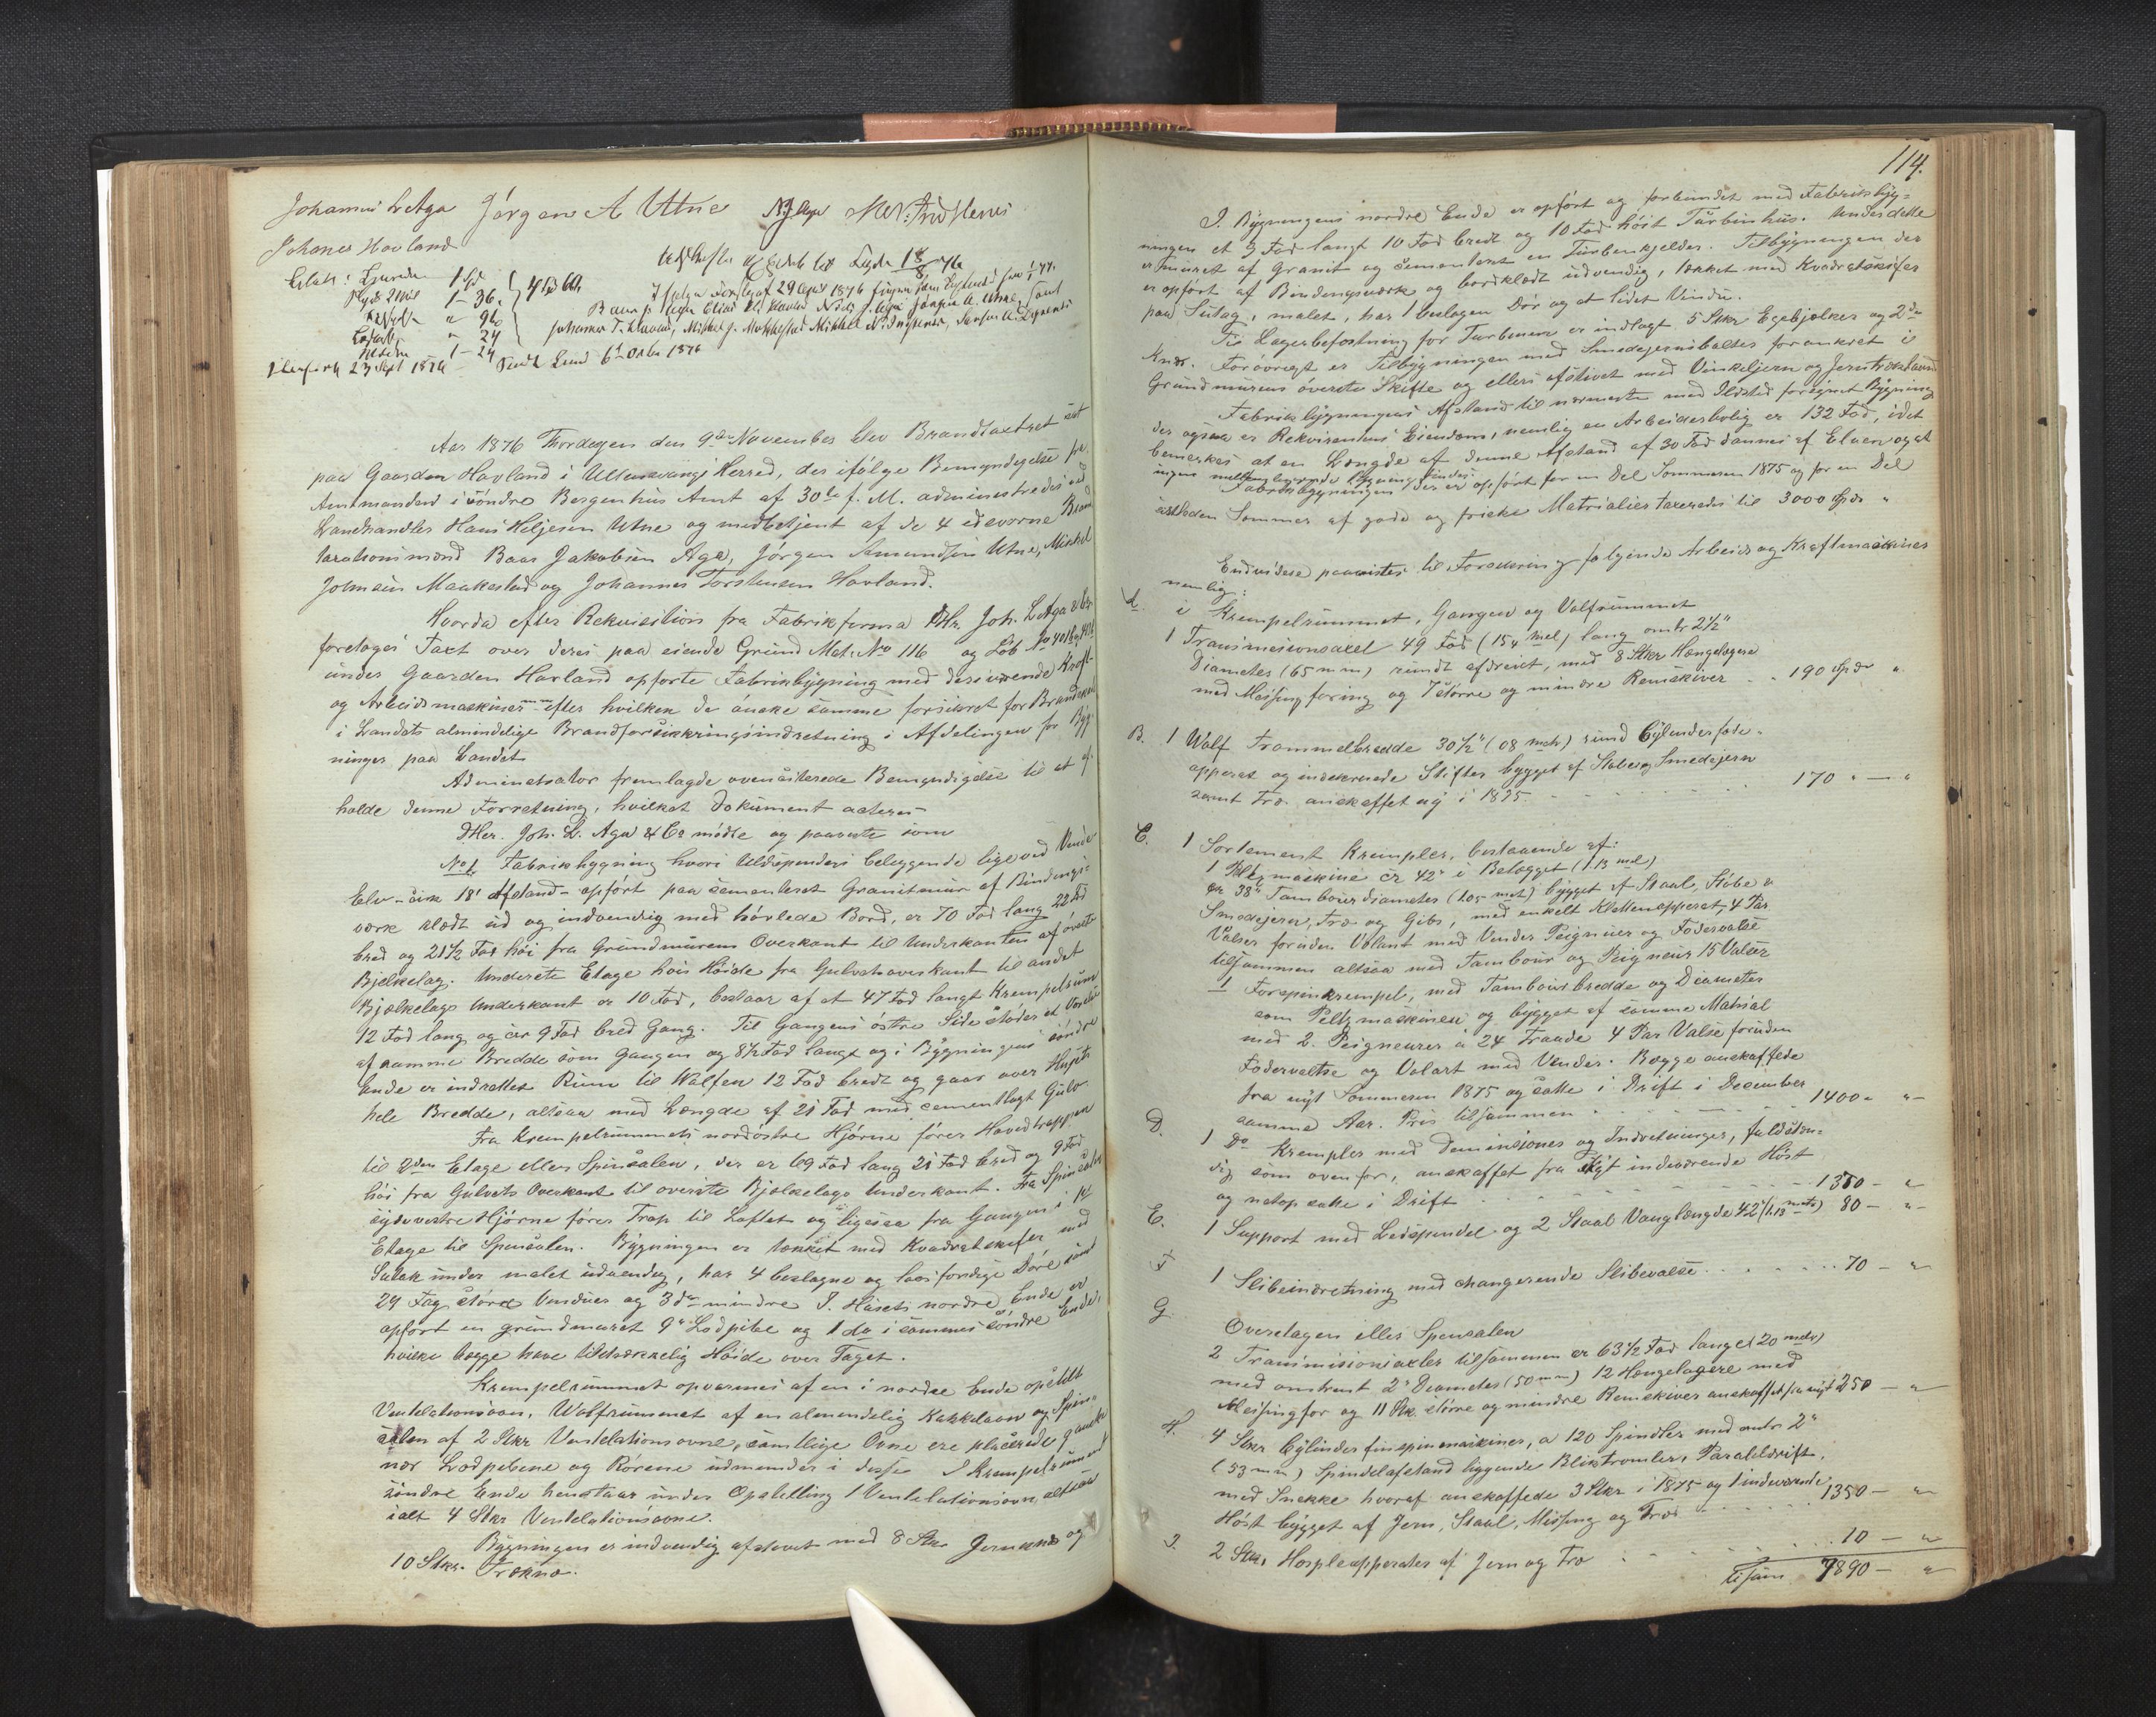 Johannes L Aga Jørgen A Utne
Johanes Hovland
1 Spd
2 Mil 1 - 36.
" 96
" 24
1 - 24
23 Sept 1876 - Lund 6te Octbr 1876
Aar 1876 Thorsdagen den 9de November blev Brandtaxtret sat
paa Gaarden Hovland i Ullensvangs Herred, der ifølge Bemyndigelse fra
Amtmanden i Søndre Bergenhus Amt af 30te f. M. administreredes ved
Landhandler Hans Heljesen Utne og medbetjent af de 4 edsvorne Brand
taxationsmænd Baar Jakobsen Aga, Jørgen Amundsen Utne, Mikkel
Johnsen Maakestad og Johannes Torstensen Hovland.
Hvorda efter Rekvisition fra Fabrikfirma DHr. Joh. L Aga & Co
foretoges Taxt over deres paa eiende Grund Mat. No 116 og Løb No
under Gaarden Hovland opførte Fabrikbygning med desværende Kraft-
og Arbeidsmaskiner efter hvilken de ønske samme forsikret for Brandskade
i Landets almindelige Brandforsikkringsindretning i Afdelingen for Byg-
ninger paa Landet
Administrator fremlagde ovenciterede Bemyndigelse til at af-
holde denne Forretning, hvilket Dokument acteres
DHer. Joh. L. Aga & Co mødte og paaviste som
No 1. Fabrikbygning hvori Uldspinderi beliggende lige ved
Elv - cirk 18' Afstand - opført paa cementeret Granitmur af Bindings-
værk klædt ud og indvendig med høvlede Bord, er 70 Fod lang 22 Fod
bred og 21 1/2 Fod høi fra Grundmurens Overkant til Underkanten af øverste
Bjelkelag. Underste Etage hvis Høide fra Gulvets overkant til andet
Bjælkelags Underkant er 10 Fod, bestaar af et 47 Fod langt Krempelrum
12 Fod lang og cir 9 Fod bred Gang. Til Gangens østre Side støder et
af samme Bredde som Gangen og 8 1/2 Fod langt og i Bygningens søndre
Ende er indrettet Rum til Wolfen 12 Fod bredt og gaar over Husets
hele Bredde, altsaa med Længde af 21 Fod med cementlagt Gulv
Fra Krempelrummets nordøstre Hjørne fører Hovedtrappen
til 2den Etage eller Spinsalen, der er 69 Fod lang 21 Fod bred og 9 Fod
høi fra Gulvets Overkant til øverste Bjælkelags Underkant. Fra Spinsalens
sydvestre Hjørne fører Trap til Loftet og ligesaa fra Gangens i 1st
Etage til Spinsalen. Bygningen er tækket med Kvadratskifer med
Sutak under malet udvendig, har 4 beslagne og laasfærdige Døre samt
29 Fag større Vinduer og 3 do mindre I. Husets nordre Ende er
opført en grundmuret 9" Lodpibe og 1 do i sammes søndre Ende,
hvilke begge have tilstrækkelig Høide over Taget.
Krempelrummet opvarmes af en i nordre Ende opstillt
Ventilationsovn, Wolfrummet af en almindelig Kakkelovn og Spin-
salen af 2 Stkr Ventilationsovne, samtlige Ovne ere placerede ganske
nær Lodpiberne og Rørene udmunder i disse I Krempelrummets
søndre Ende henstaar under Opstilling 1 Ventilationsovn, altsaa
ialt 4 Stkr Ventilationsovne.
Bygningen er indvendig afstivet med 8 Stkr Jernknæ og
10 Stkr. Træknæ.
114.
I. Bygningens nordre Ende er opført og forbundet med Fabrikbyg-
ningen et 9 Fod langt 10 Fod bredt og 10 Fod høit Turbinhus. Under dette
er muret af Granit og cementert en Turbinkjelder. Tilbygningen der
er opført af Bindingsværk og bordklædt udvendig, tækket med Kvadratskifer
paa Sutag, malet, har 1 beslagen Dør og et lidet Vindu.
Til Lagerbefæstning for Turbinen er indlagt 5 Stkr Egebjelker og 2 do
Knæ. Forøvrigt er Tilbygningen med Smedejernsbolter forankret i
Grundmurens øverste Skifte og ellers afstivet med Vinkeljern og
Fabrikbygningens Afstand til nærmeste med Ildsted forsynet Bygning
der ogsaa er Rekvirentens Eiendom, nemlig en Arbeiderbolig er 132 Fod, idet
bemærkes at en Længde af denne Afstand af 30 Fod dannes af Elven og at
ingen mellemliggende Bygning findes.
Fabrikbygningen der er opført for en Del Sommeren 1875 og for en Del
sidstleden Sommer af gode og friske Matrialier taxeredes til 3000 Spdr "
Endvidere paavistes til Forsikring følgende Arbeids og Kraftmaskiner
nemlig:
A. i Krempelrummet, Gangen og Volfrummet
1 Transmissionsaxel 49 Fod (15,4 met) lang omtr 2 1/2"
Diameter (65 mm) rundt afdreiet, med 8 Stkr Hængelagere
med Messingforing og 7 større og mindre Remskiver - " 190 Spdr "
B. 1 Wolf Trommelbredde 30 1/2" (08 metr) rund Cylinderføde-
apparat og indskruede Stifter bygget af Støbe og Smedejern
samt Træ anskaffet ny i 1875 - - - 170 " - "
C. 1 Sortement Krempler, bestaaende af:
1 Peltzmaskine cr 42" i Belægget (1.13 met)
cr 38" Tambourdiameter (1.0 met) bygget af Staal, Støbe &
Smedejern, Træ og Gibs, med enkelt Klettenapparat, 4 Par
Valser foruden Volant med Vender Peigneur og Fodervalse
tilsammen altsaa med Tambour og Peigneur 15 Valser
1 Forspinkrempel, med Tambourbredde og Diameter
som Peltzmaskinen og bygget af samme Matrial
med 2. Peigneurer à 24 Traade 4 Par Valse foruden
Fodervaltse og Volant med Vender. Begge anskaffede
fra nyt Sommeren 1875 og satte i Drift i December
samme Aar. Pris tilsammen - - - 1400 " " -
D. 1 do Krempler med Deminsjoner og Indretninger, fuldstæn-
dig som ovenfor, anskaffet fra Nyt indeværende Høst
og netop satte i Drift - - - 1350 - "
E. 1 Support med Ledspindel og 2 Staal Vanglængde 42" (1.13 metr) 80 - " -
F 1 Slibeindretning med changerende Slibevalse . . . . 70 - "
G. Overetagen eller Spinsalen
2 Transmissionsaxler tilsammen cr 63 1/2 Fod lange (20 metr)
med omtrent 2" Diameter (50 mm) 12 Hængelagere med
Messingfor og 11 Stk. større og mindre Remskiver anskaffet fra nyt 250 - "
H. 4 Stkr Cylinder finspinmaskiner, a 120 Spindler med omtr 2"
(53 mm) Spindelafstand liggende Bliktromler, Paraleldrift,
med Snekke hvoraf anskaffede 3 Stkr i 1875 og 1 indeværende
Høst bygget af Jern, Staal, Missing og Træ - - - 1350 - "
I. 2 Stkr. Haspleapperater af Jern og Træ - - - 10 - "
tilsam 7890 - "